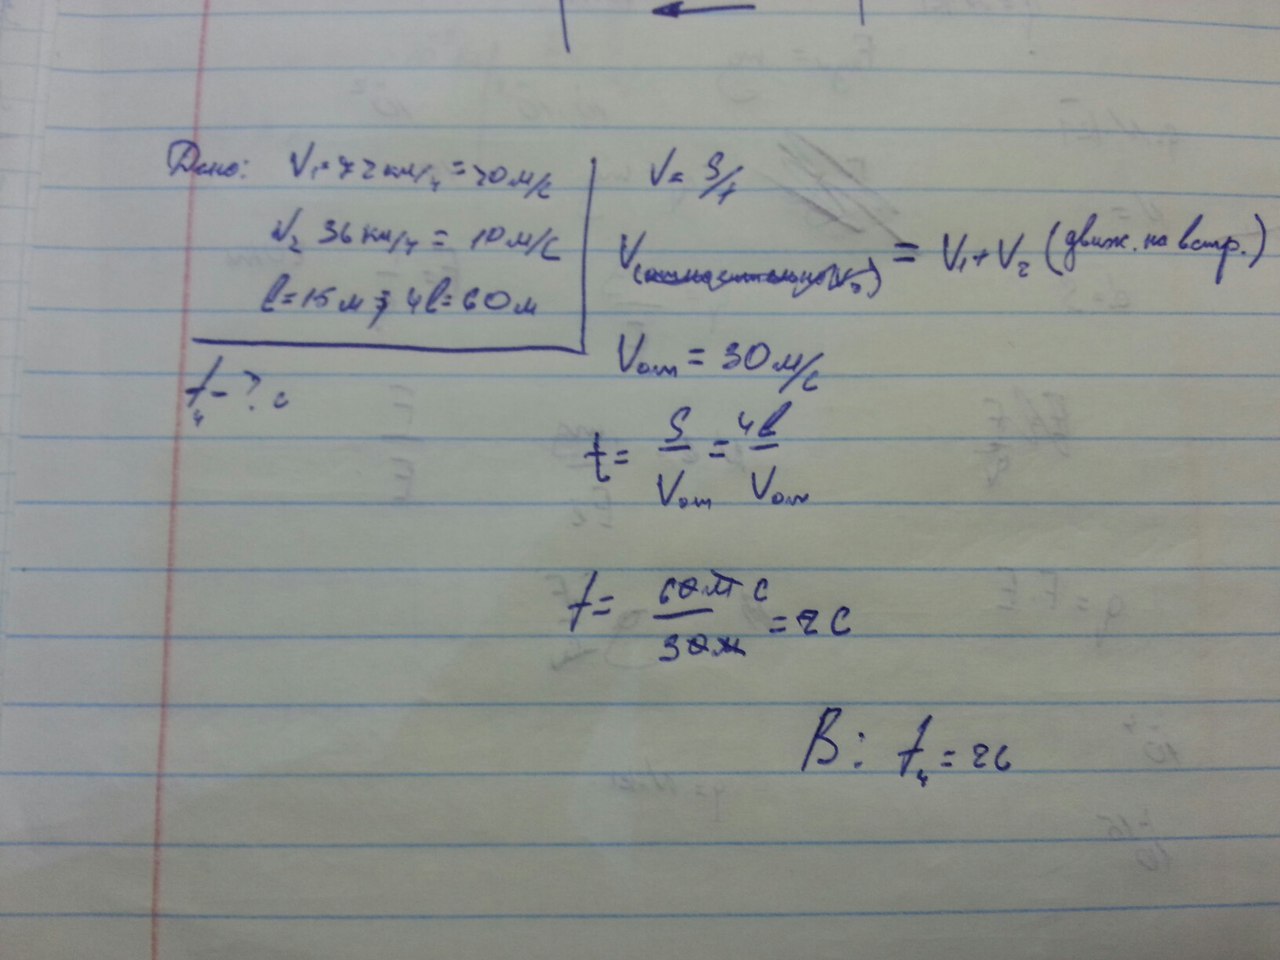 Дано: V₁ = 72 км/ч = 20 м/с
V₂ 36 км/ч = 10 м/с
l = 15 м ⇒ 4l = 60 м
t₄ - ? с
V = S/t
V = V₁ + V₂ (движ. на встр.)
Vот = 30 м/с
t = S/Vот = 4l/Vот
t = 60м с/30м = 2 с
В: t₄ = 2с